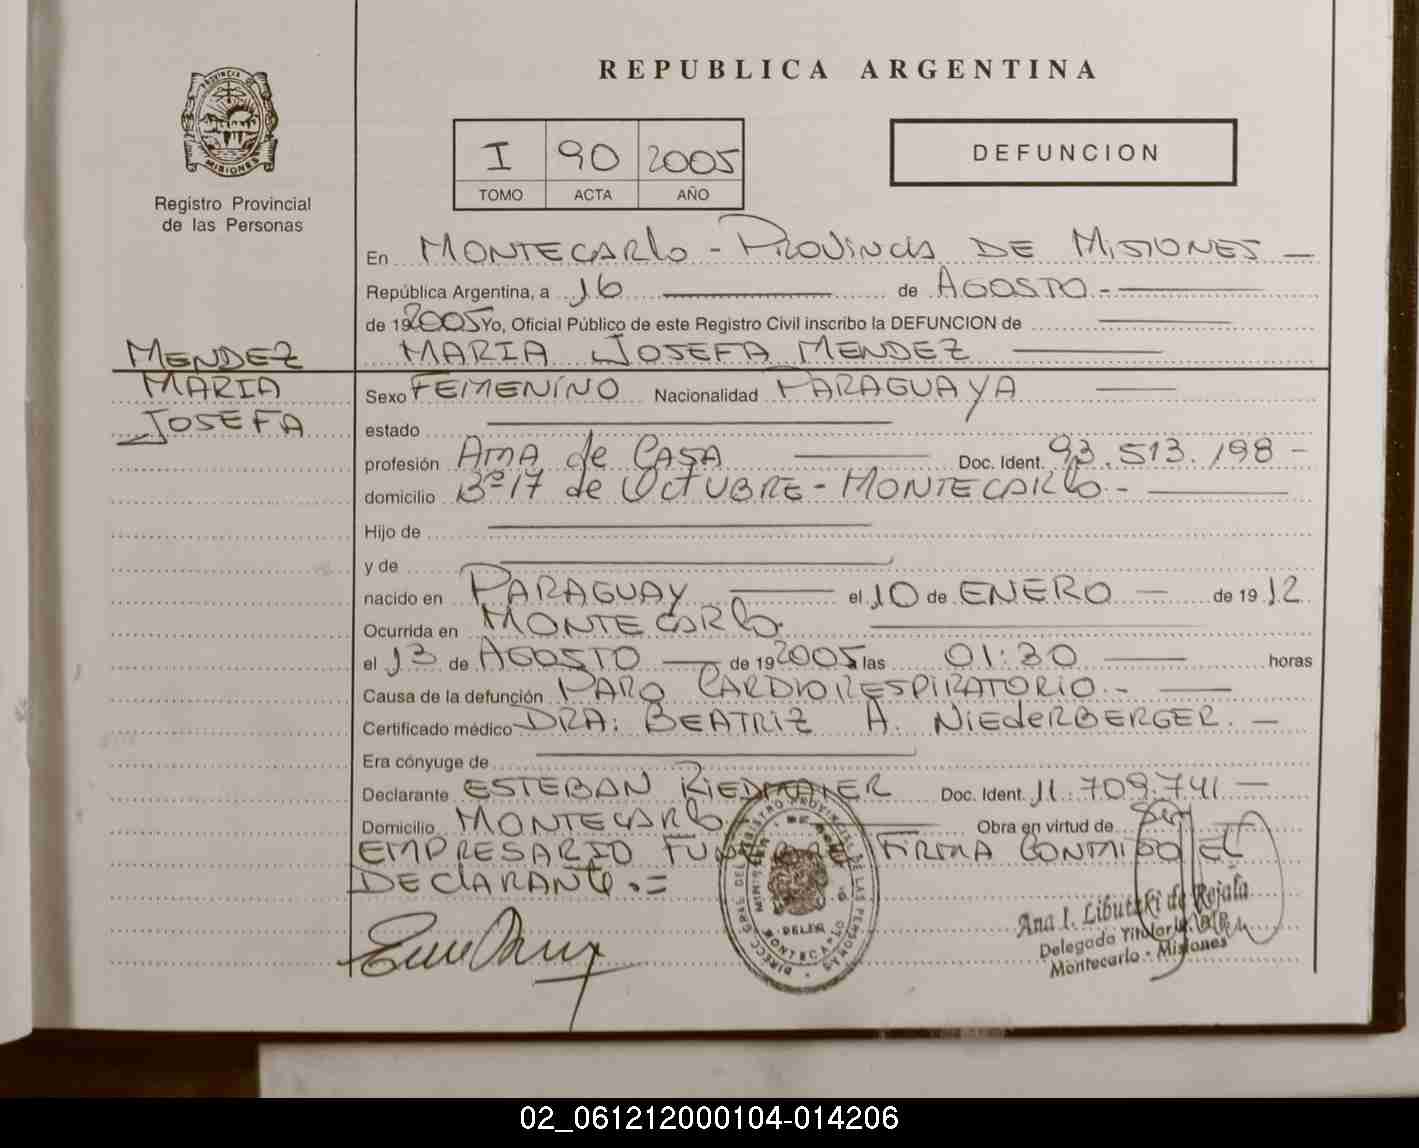 REPUBLICA ARGENTINA
PROVINCIA DE MISIONES
Registro Provincial
de las Personas
I 90 2005
TOMO ACTA AÑO
DEFUNCION
En MONTECARLO - PROVINCIA DE MISIONES
República Argentina, a 16 de AGOSTO.-
de 192005 Yo, Oficial Público de este Registro Civil inscribo la DEFUNCION de
MARIA JOSEFA MENDEZ
MENDEZ
MARIA
JOSEFA
Sexo FEMENINO Nacionalidad PARAGUAYA
estado
profesión AMA de CASA Doc. Ident. 93.513.198 -
domicilio Bº 17 de OCTUBRE - MONTECARLO -
Hijo de
y de
nacido en PARAGUAY el 10 de ENERO - de 1912
Ocurrida en MONTECARLO.
el 13 de AGOSTO de 192005 las 01:30 horas
Causa de la defunción PARO CARDIORESPIRATORIO.-
Certificado médico DRA: BEATRIZ A. NIEDERBERGER. -
Era cónyuge de
Declarante ESTEBAN RIEDMAIER Doc. Ident. 11.709.741 -
Domicilio MONTECARLO Obra en virtud de Ser
EMPRESARIO FUNEBRE FIRMA CONMIGO EL
DECLARANTE.=
DIRECC. GRAL DEL REGISTRO PROVINCIAL DE LAS PERSONAS
DELEG.
MONTECARLO
Ana I. Libutzki de Rejala
Delegada Titular R.P.P.
Montecarlo - Misiones
02_061212000104-014206